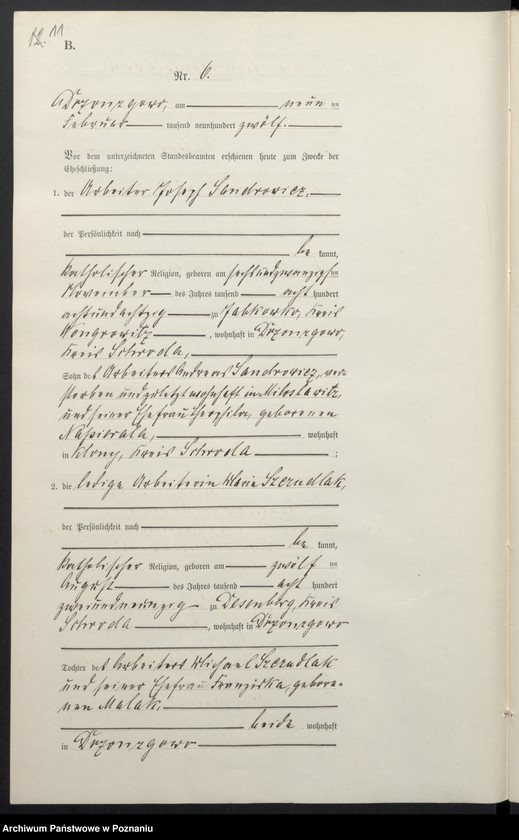 12. 11
B.
Nr. 6.
am neun ten
Februar tausend neunhundert zwölf.
Vor dem unterzeichneten Standesbeamten erschienen heute zum Zwecke der
Eheschließung:
1. der Arbeiter Joseph Sandrowicz,
der Persönlichkeit nach
be kannt,
katholischer Religion, geboren am sechsundzwanzigsten
November des Jahres tausend acht hundert
achtundachtzig zu Jabkowko, Kreis
Wongrowitz, wohnhaft in
Kreis Schroda,
Sohn des Arbeiters Andreas Sandrowicz, ver-
storben und zuletzt wohnhaft in Miloslawitz,
und seiner Ehefrau Theophila, geborenen
wohnhaft
in Klony, Kreis Schroda ;
2. die ledige Arbeiterin Maria Szczudlak,
der Persönlichkeit nach
be kannt,
katholischer Religion, geboren am zwölf ten
August des Jahres tausend acht hundert
zweiundneunzig zu Desenberg, Kreis
Schroda, wohnhaft in
Tochter des Arbeiters Michael Szczudlak
und seiner Ehefrau Franziska, gebore-
nen Malak,
beide wohnhaft
in
Archiwum Państwowe w Poznaniu